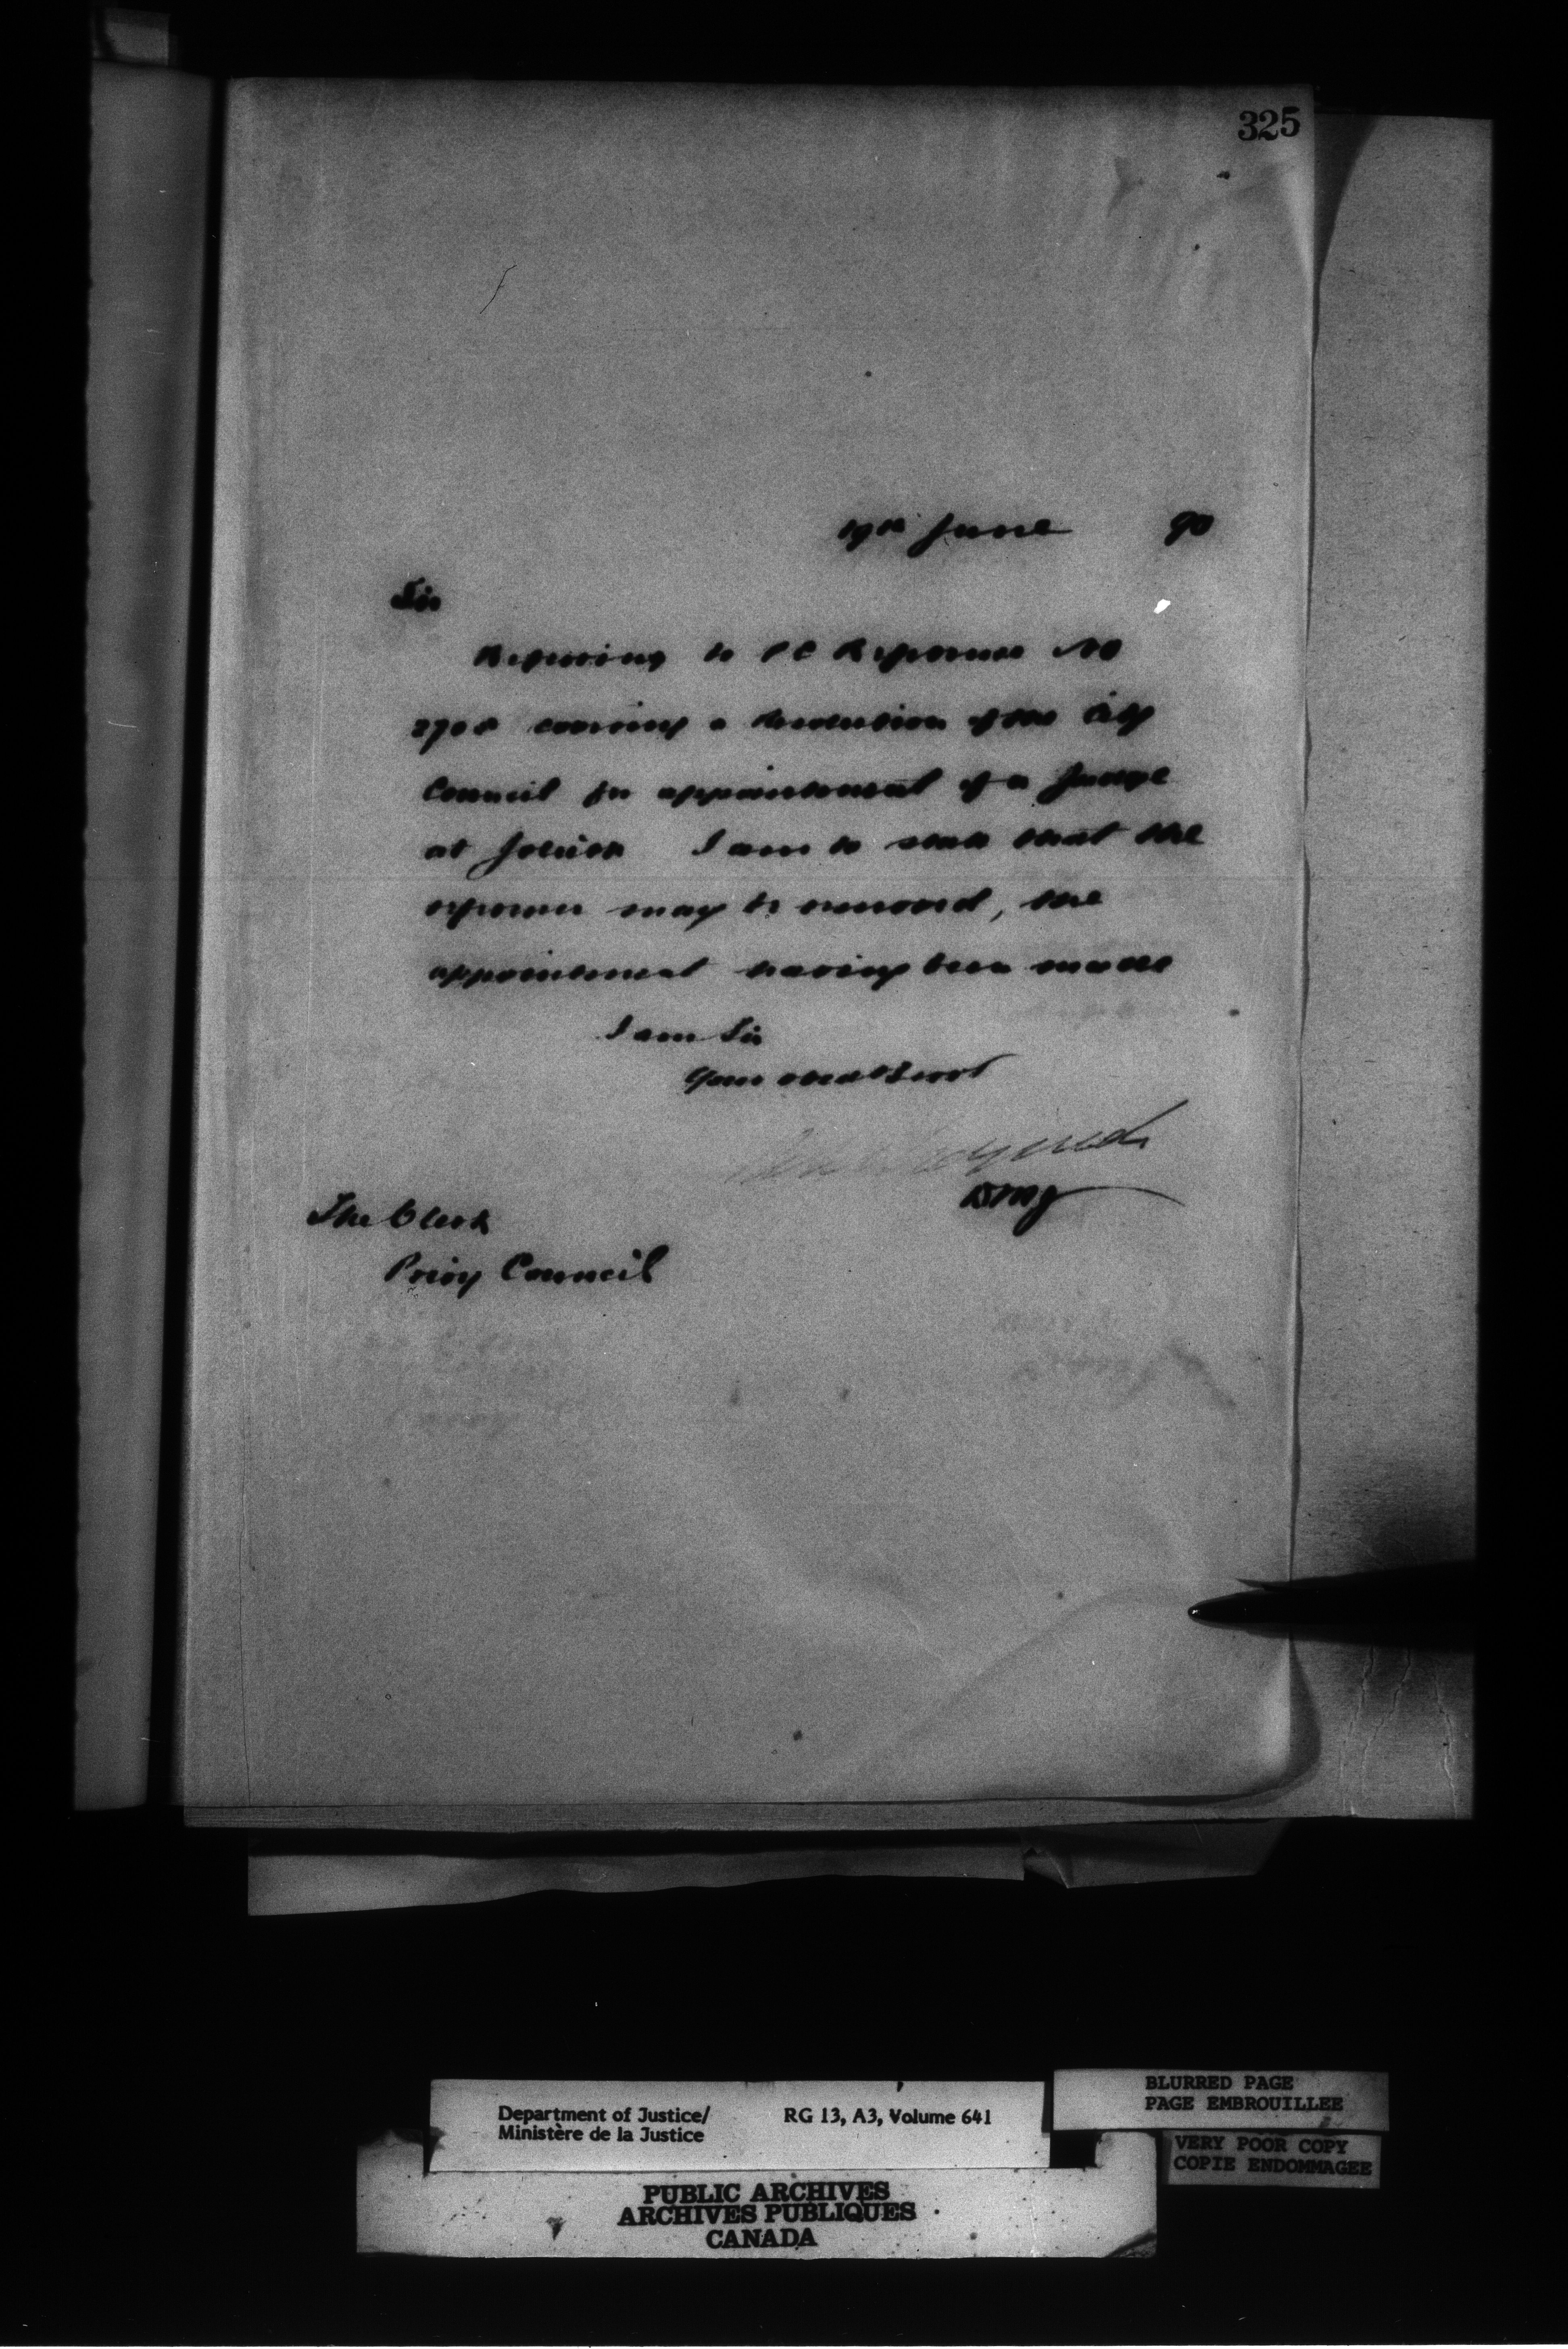 325
19th June 90
Sir
Referring to PC Reference No
covering a Resolution of the City
Council for appointment of a Judge
at Joliette I am to state that the
reference may be removed, the
appointment having been made
I am Sir
Your obedt Servt
DMJ
The Clerk
Privy Council
Department of Justice/ RG 13, A3, Volume 641
Ministère de la Justice
BLURRED PAGE
PAGE EMBROUILLEE
VERY POOR COPY
COPIE ENDOMMAGEE
PUBLIC ARCHIVES
ARCHIVES PUBLIQUES
CANADA